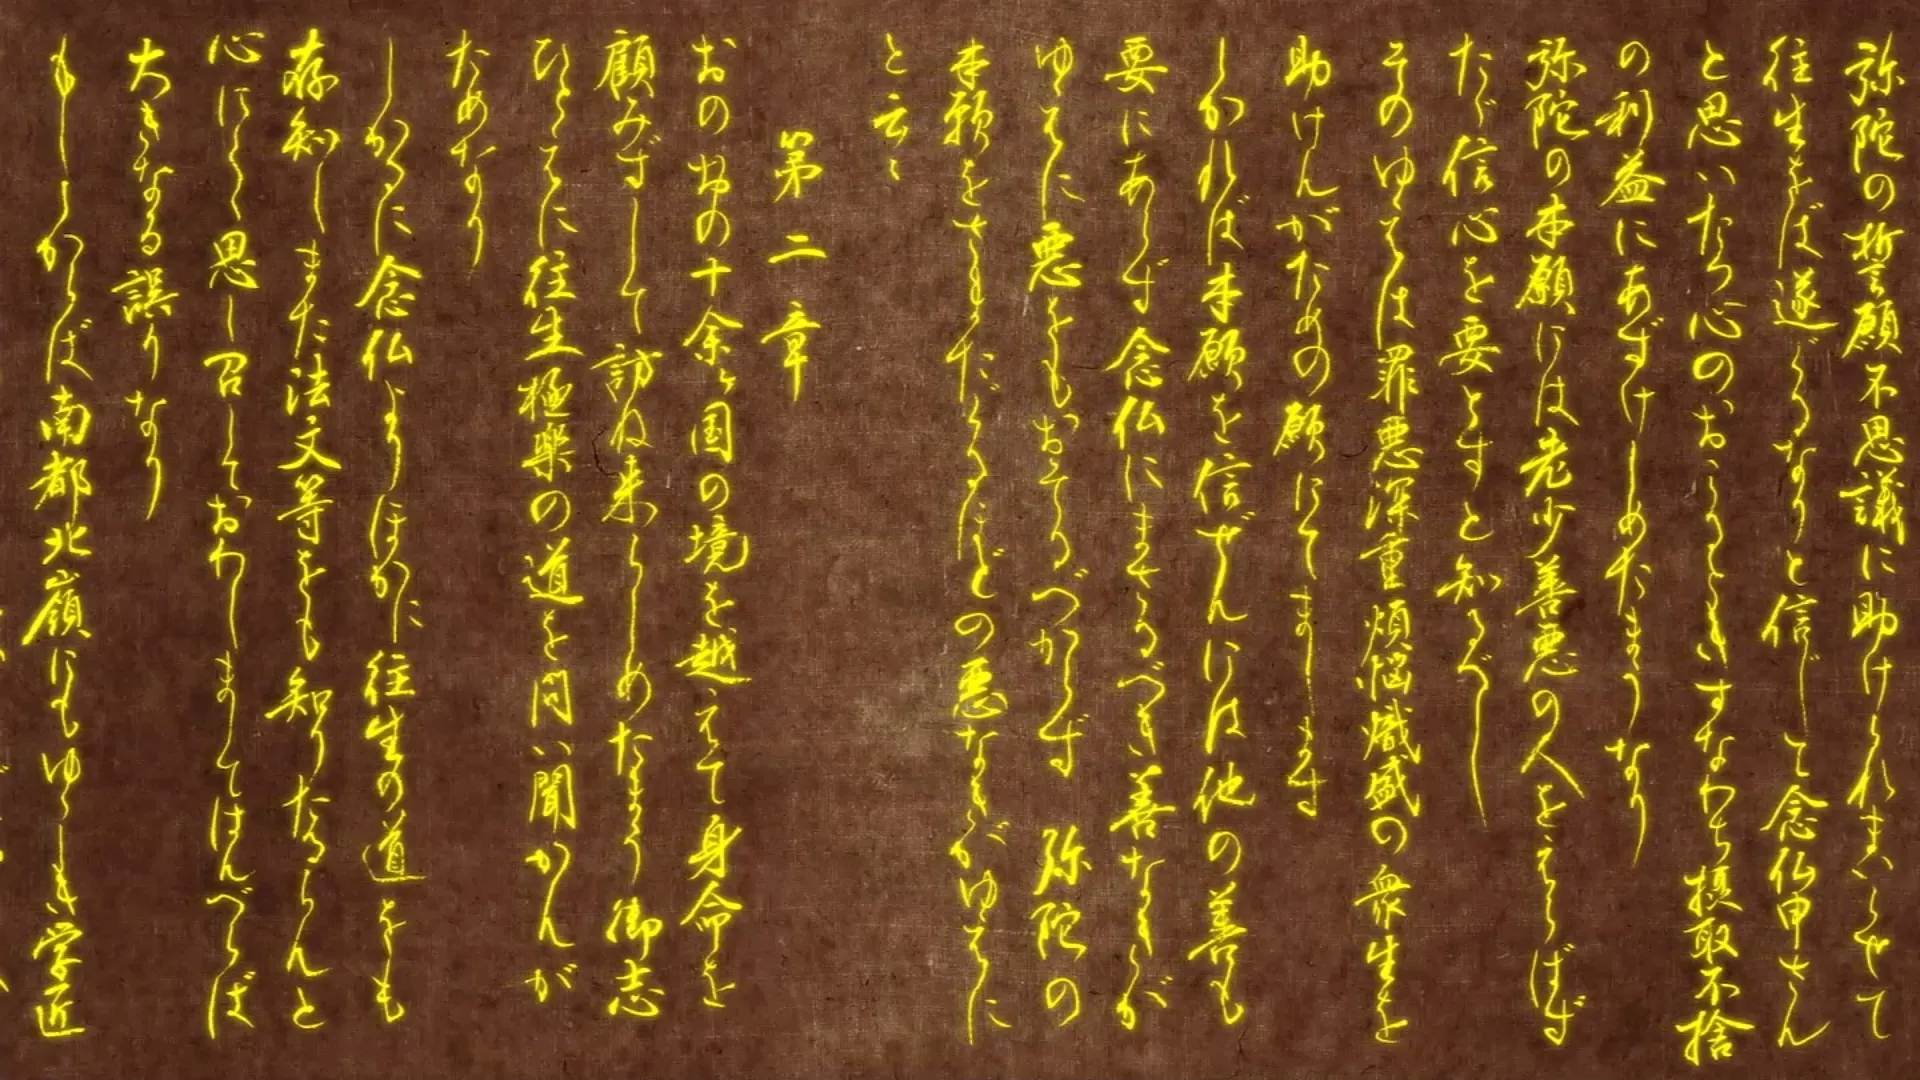 弥陀の誓願不思議に助けられまいらせて
往生をば遂ぐるなりと信じて念仏申さん
と思いたつ心のおこるときすなわち摂取不捨
の利益にあずけしめたまうなり
弥陀の本願には老少善悪の人をえらばず
ただ信心を要とすと知るべし
そのゆえは罪悪深重煩悩熾盛の衆生を
助けんがための願にてまします
しかれば本願を信ぜんには他の善も
要にあらず念仏にまさるべき善なきが
ゆえに悪をもおそるべからず 弥陀の
本願をさまたぐるほどの悪なきがゆえに
と云々
第二章
おのおの十余ヶ国の境を越えて身命を
顧みずして訪ね来らしめたまう御志
ひとえに往生極楽の道を問い聞かんが
ためなり
しかるに念仏よりほかに往生の道をも
存知しまた法文等をも知りたるらんと
心にくく思し召しておわしましてはんべらば
大きなる誤りなり
もししからば南都北嶺にもゆゆしき学匠